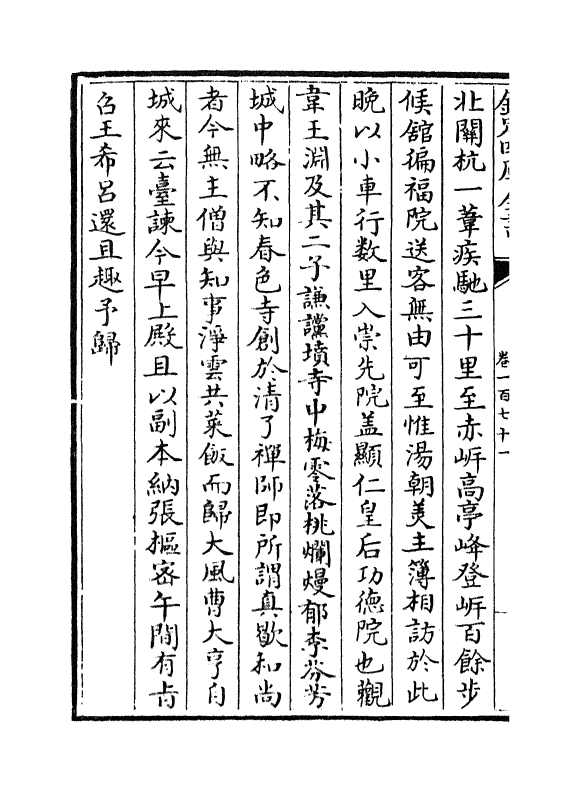 卷一百七十一
北關杭一葦疾馳三十里至赤岸高亭峰登岸百餘步
候舘徧福院送客無由可至惟湯朝美主簿相訪於此
晚以小車行数里入崇先院盖顯仁皇后功德院也觀
韋王淵及其二子謙讜墳寺中梅零落桃爛熳郁李芬芳
城中略不知春色寺創於清了禪師即所謂真歇和尚
者今無主僧與知事淨雲共菜飯而歸大風曹大亨自
城來云臺諫今早上殿且以副本納張樞密午間有㫖
召王希吕還且趣予歸